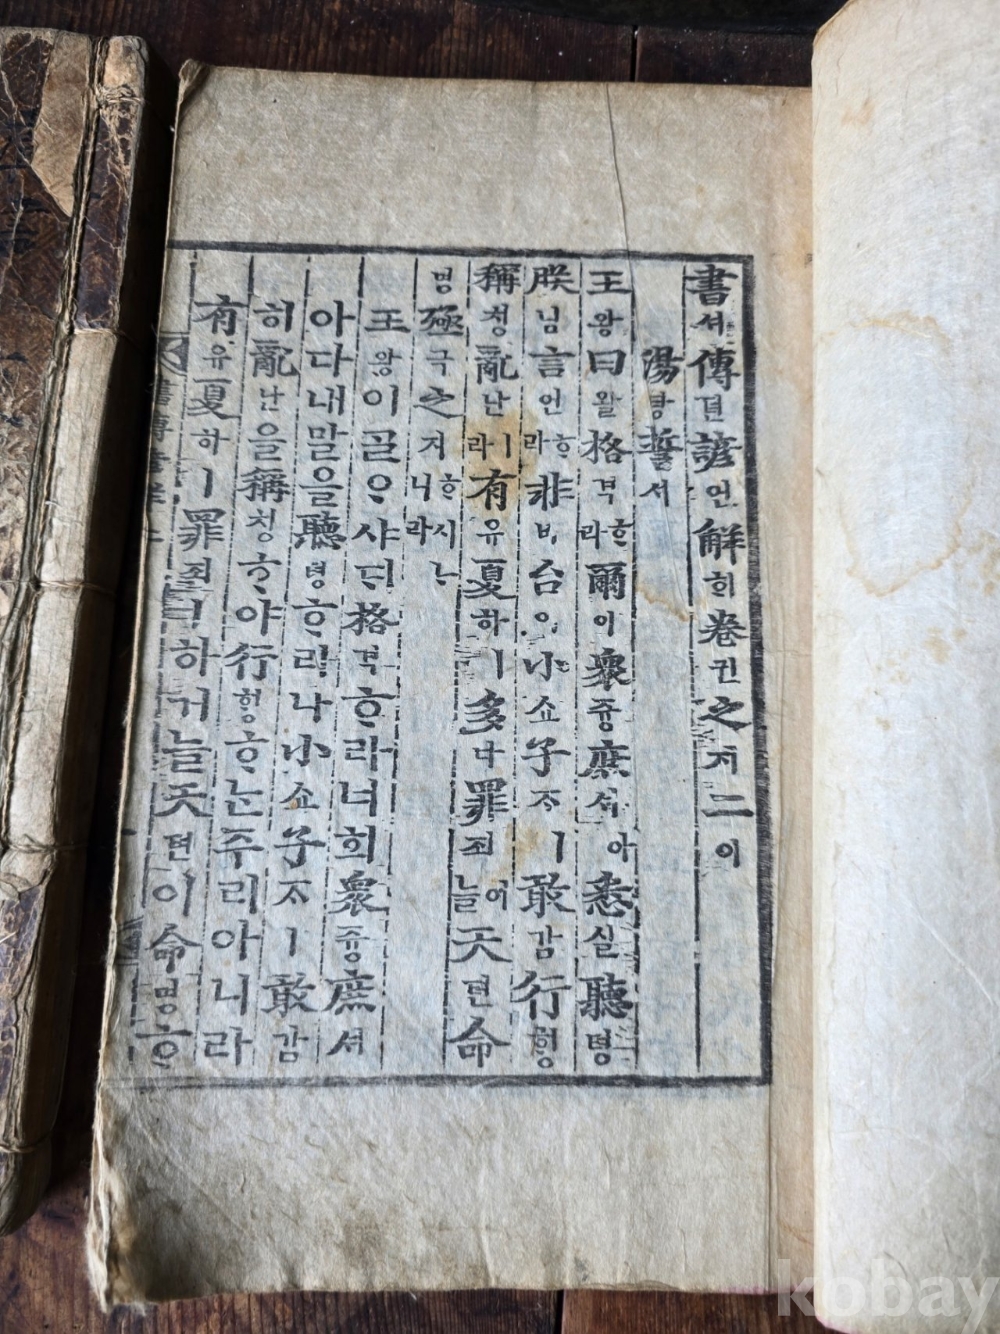 書셔傳뎐諺언解ᄒᆡ卷권之지二이
湯탕誓셔
王왕曰왈格격ᄒᆞ라爾이衆즁庶셔아悉실聽텽
朕님言언ᄒᆞ라非비台이小쇼子ᄌᆞㅣ敢감行ᄒᆡᆼ
稱칭亂난ㅣ라有유夏하ㅣ多다罪죄어늘天텬命
명殛극之지ᄒᆞ시ᄂᆞ니라
王왕이ᄀᆞᆯᄋᆞ샤ᄃᆡ格격ᄒᆞ라너희衆즁庶셔
아다내말을聽텽ᄒᆞ라나小쇼子ᄌᆞㅣ敢감
히亂난을稱칭ᄒᆞ야行ᄒᆡᆼᄒᆞᄂᆞᆫ주리아니라
有유夏하ㅣ罪죄하거늘天텬이命명ᄒᆞ
kobay